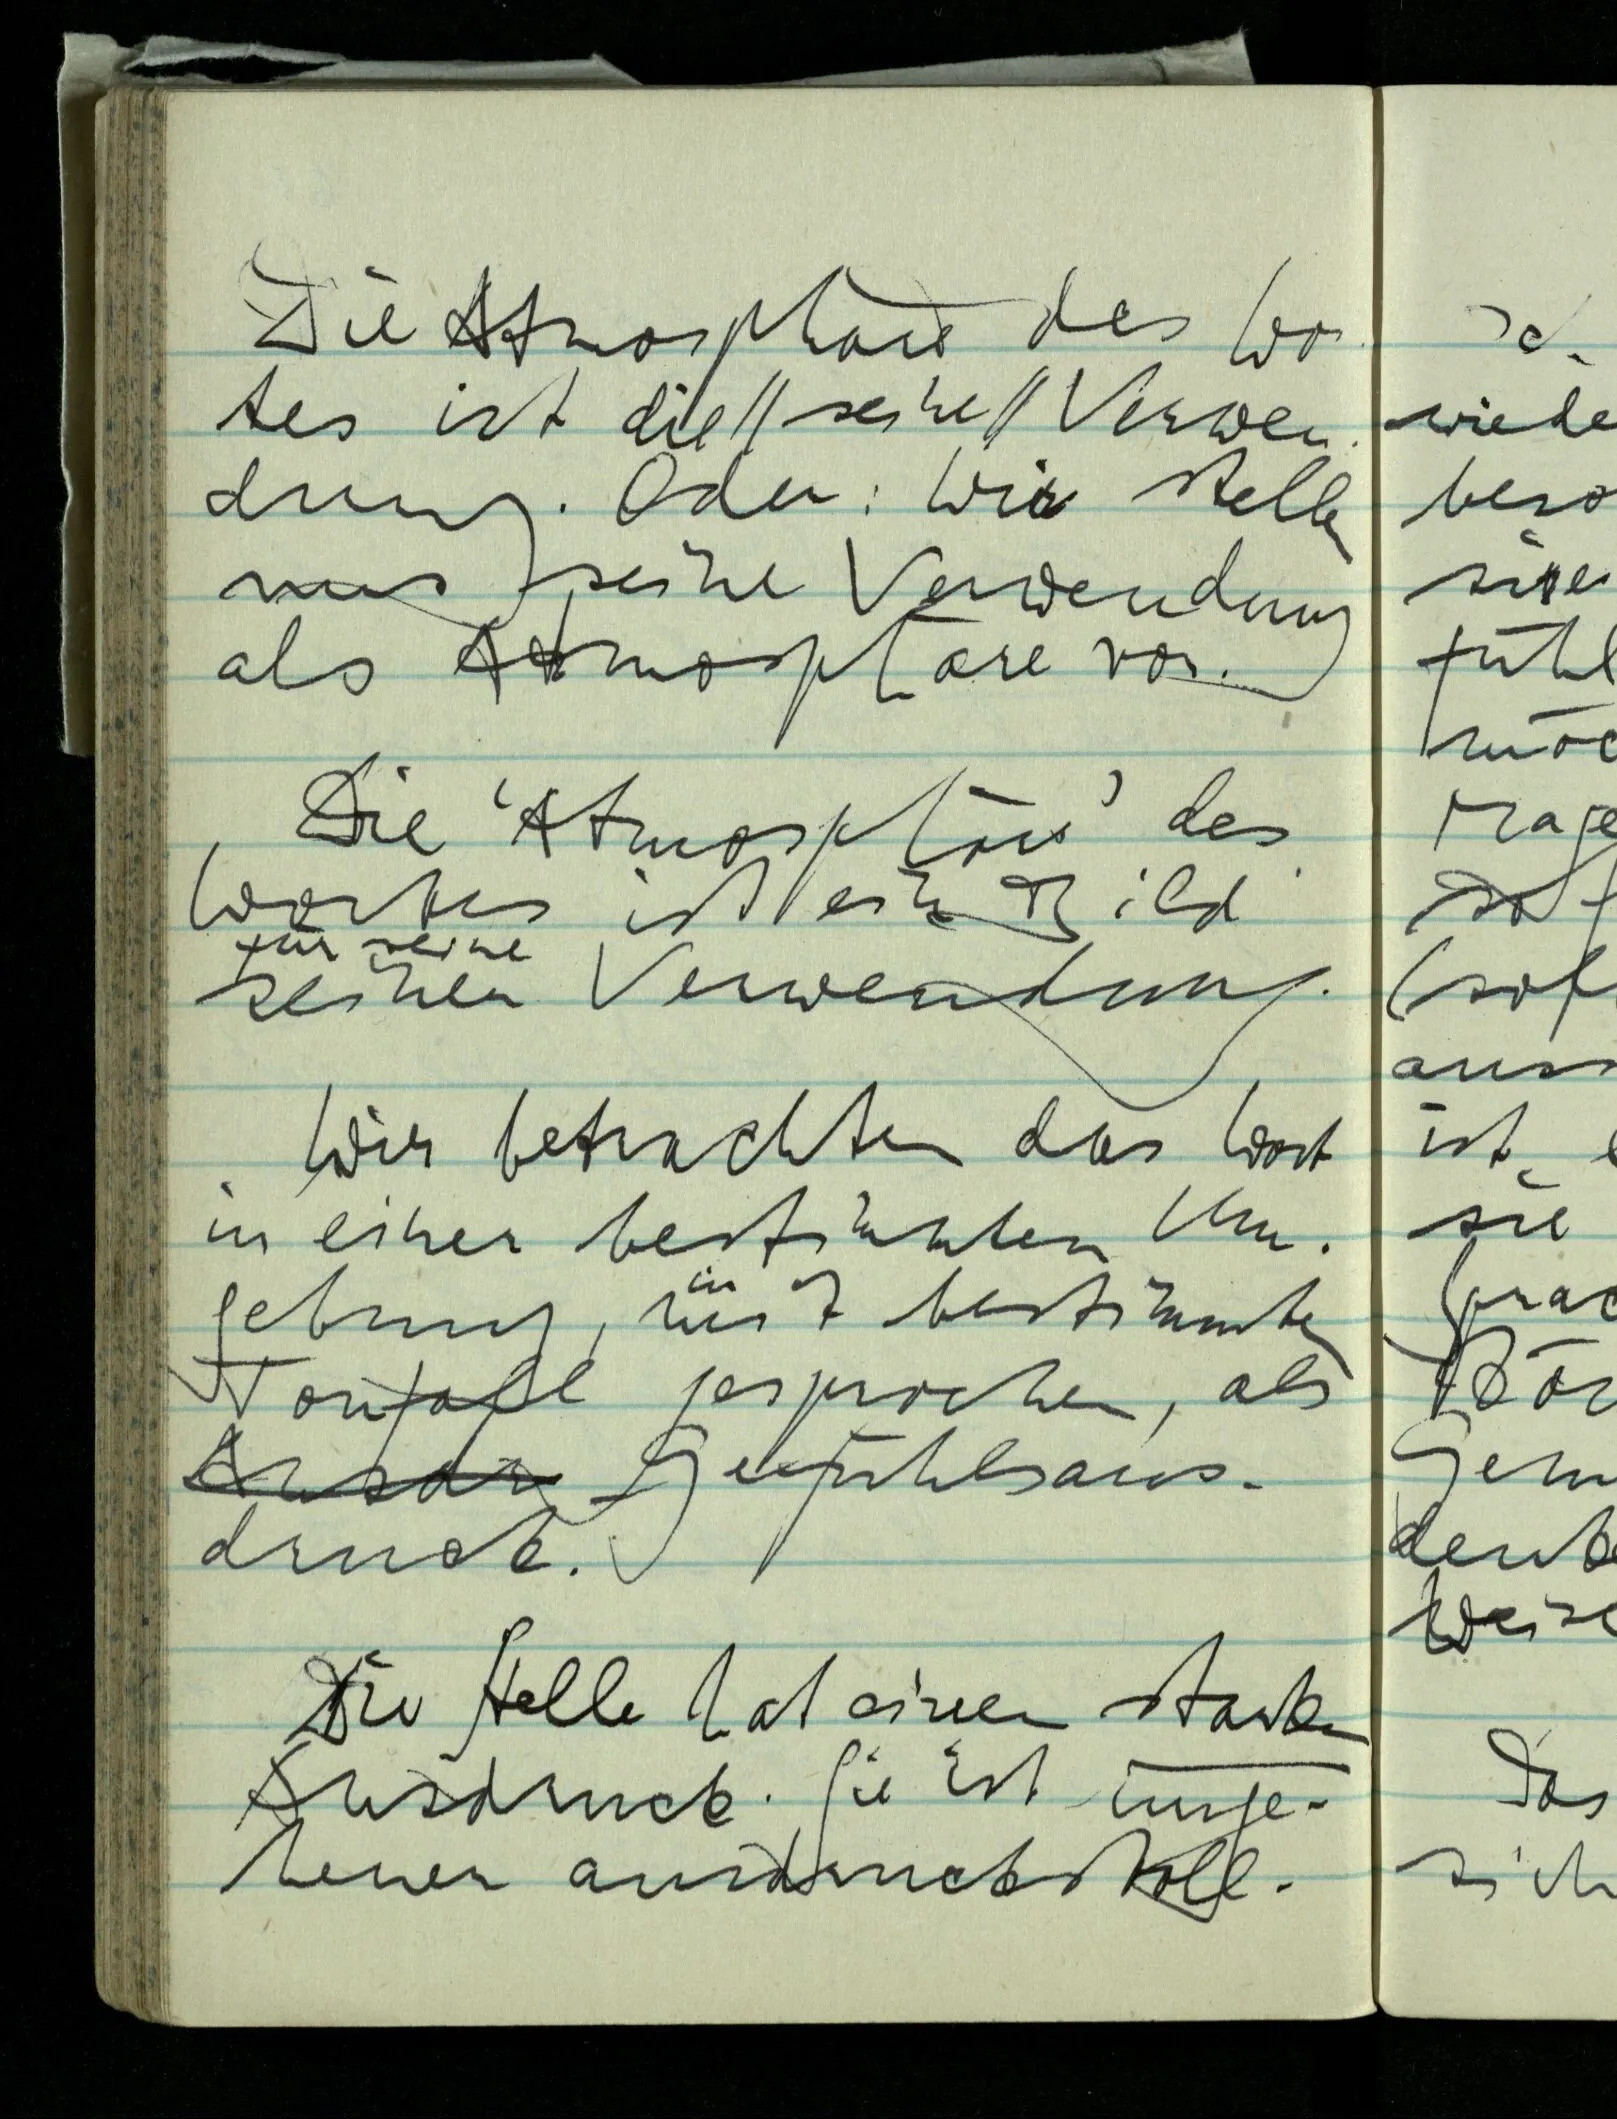 Die Atmosphäre des Wor-
tes ist die // seine // Verwen-
dung. Oder: Wir stellen
uns seine Verwendung
als Atmosphäre vor.
Die 'Atmosphäre' des
Wortes ist ein Bild
für seine
seiner Verwendung.
Wir betrachten das Wort
in einer bestimmten Um-
in
gebung, mit bestimmten
Tonfall gesprochen, als
Ausdr Gefühlsaus-
druck.
Die Stelle hat einen starken
Ausdruck. Sie ist unge-
heuer ausdrucksvoll.
wiede
beso
fühl
möc
trage
ist
sie
denke
Weise
Das
sich